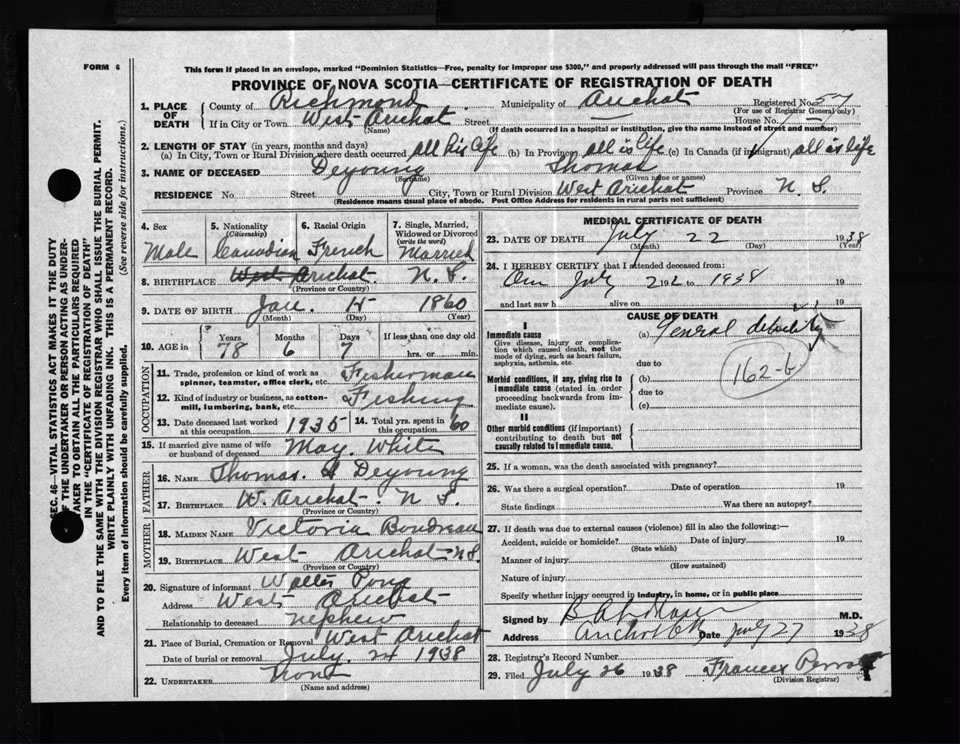 FORM 6
This form if placed in an envelope, marked "Dominion Statistics—Free, penalty for improper use $300," and properly addressed will pass through the mail "FREE"
PROVINCE OF NOVA SCOTIA—CERTIFICATE OF REGISTRATION OF DEATH
1. PLACE OF DEATH County of Richmond Municipality of Arichat Registered No. 57
(For use of Registrar General only)
If in City or Town West Arichat Street House No.
(Name) (If death occurred in a hospital or institution, give the name instead of street and number)
2. LENGTH OF STAY (in years, months and days)
(a) In City, Town or Rural Division where death occurred all his life (b) In Province all is life (c) In Canada (if immigrant) all is life
3. NAME OF DECEASED Deyoung Thomas
(Surname) (Given name or names)
RESIDENCE No. Street City, Town or Rural Division West Arichat Province N. S.
(Residence means usual place of abode. Post Office Address for residents in rural parts not sufficient)
4. Sex 5. Nationality (Citizenship) 6. Racial Origin 7. Single, Married, Widowed or Divorced (write the word)
Male Canadian French Married
8. BIRTHPLACE West Arichat. N. S.
(Province or Country)
9. DATE OF BIRTH Jan 15 1860
(Month) (Day) (Year)
10. AGE in Years Months Days If less than one day old
78 6 7 hrs. or min.
OCCUPATION
11. Trade, profession or kind of work as spinner, teamster, office clerk, etc. Fisherman
12. Kind of industry or business, as cotton-mill, lumbering, bank, etc. Fishing
13. Date deceased last worked at this occupation 1935 14. Total yrs. spent in this occupation 60
15. If married give name of wife or husband of deceased May White
FATHER
16. NAME Thomas. Deyoung
17. BIRTHPLACE W. Arichat. N S.
(Province or Country)
MOTHER
18. MAIDEN NAME Victoria Boudreau
19. BIRTHPLACE West Arichat N.S.
(Province or Country)
20. Signature of informant Walter
Address West Arichat
Relationship to deceased nephew
21. Place of Burial, Cremation or Removal West Arichat
Date of burial or removal July. 24 1938
22. UNDERTAKER
(Name and address)
MEDICAL CERTIFICATE OF DEATH
23. DATE OF DEATH July 22 1938
(Month) (Day) (Year)
24. I HEREBY CERTIFY that I attended deceased from:
July 1938 19
and last saw h alive on 19
CAUSE OF DEATH
I
Immediate cause
Give disease, injury or complication which caused death, not the mode of dying, such as heart failure, asphyxia, asthenia, etc.
(a) General debility
due to
Morbid conditions, if any, giving rise to immediate cause (stated in order proceeding backwards from immediate cause).
(b)
due to
(c)
162-b
II
Other morbid conditions (if important) contributing to death but not causally related to immediate cause.
25. If a woman, was the death associated with pregnancy?
26. Was there a surgical operation? Date of operation 19
State findings Was there an autopsy?
27. If death was due to external causes (violence) fill in also the following:—
Accident, suicide or homicide? Date of injury 19
(State which)
Manner of injury
(How sustained)
Nature of injury
Specify whether injury occurred in industry, in home, or in public place
Signed by M.D.
Address Arichat Date July 27 1938
28. Registrar's Record Number
29. Filed July 26 1938 Frances
(Division Registrar)
SEC. 46—VITAL STATISTICS ACT MAKES IT THE DUTY
OF THE UNDERTAKER OR PERSON ACTING AS UNDER-
TAKER TO OBTAIN ALL THE PARTICULARS REQUIRED
IN THE "CERTIFICATE OF REGISTRATION OF DEATH"
AND TO FILE THE SAME WITH THE DIVISION REGISTRAR WHO SHALL ISSUE THE BURIAL PERMIT.
WRITE PLAINLY WITH UNFADING INK. THIS IS A PERMANENT RECORD.
Every item of information should be carefully supplied. (See reverse side for instructions.)